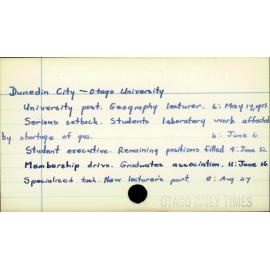 Dunedin City - Otago University
University post. Geography lecturer. 6: May 14,
Serious setback. Students laboratory work affected
by shortage of gas. 6: June 6
Student executive. Remaining positions filled 4: June 12
Membership drive. Graduates association. 11: June 16
Specialised task. New lecturer's post. 8: Aug 27
OTAGO DAILY TIMES